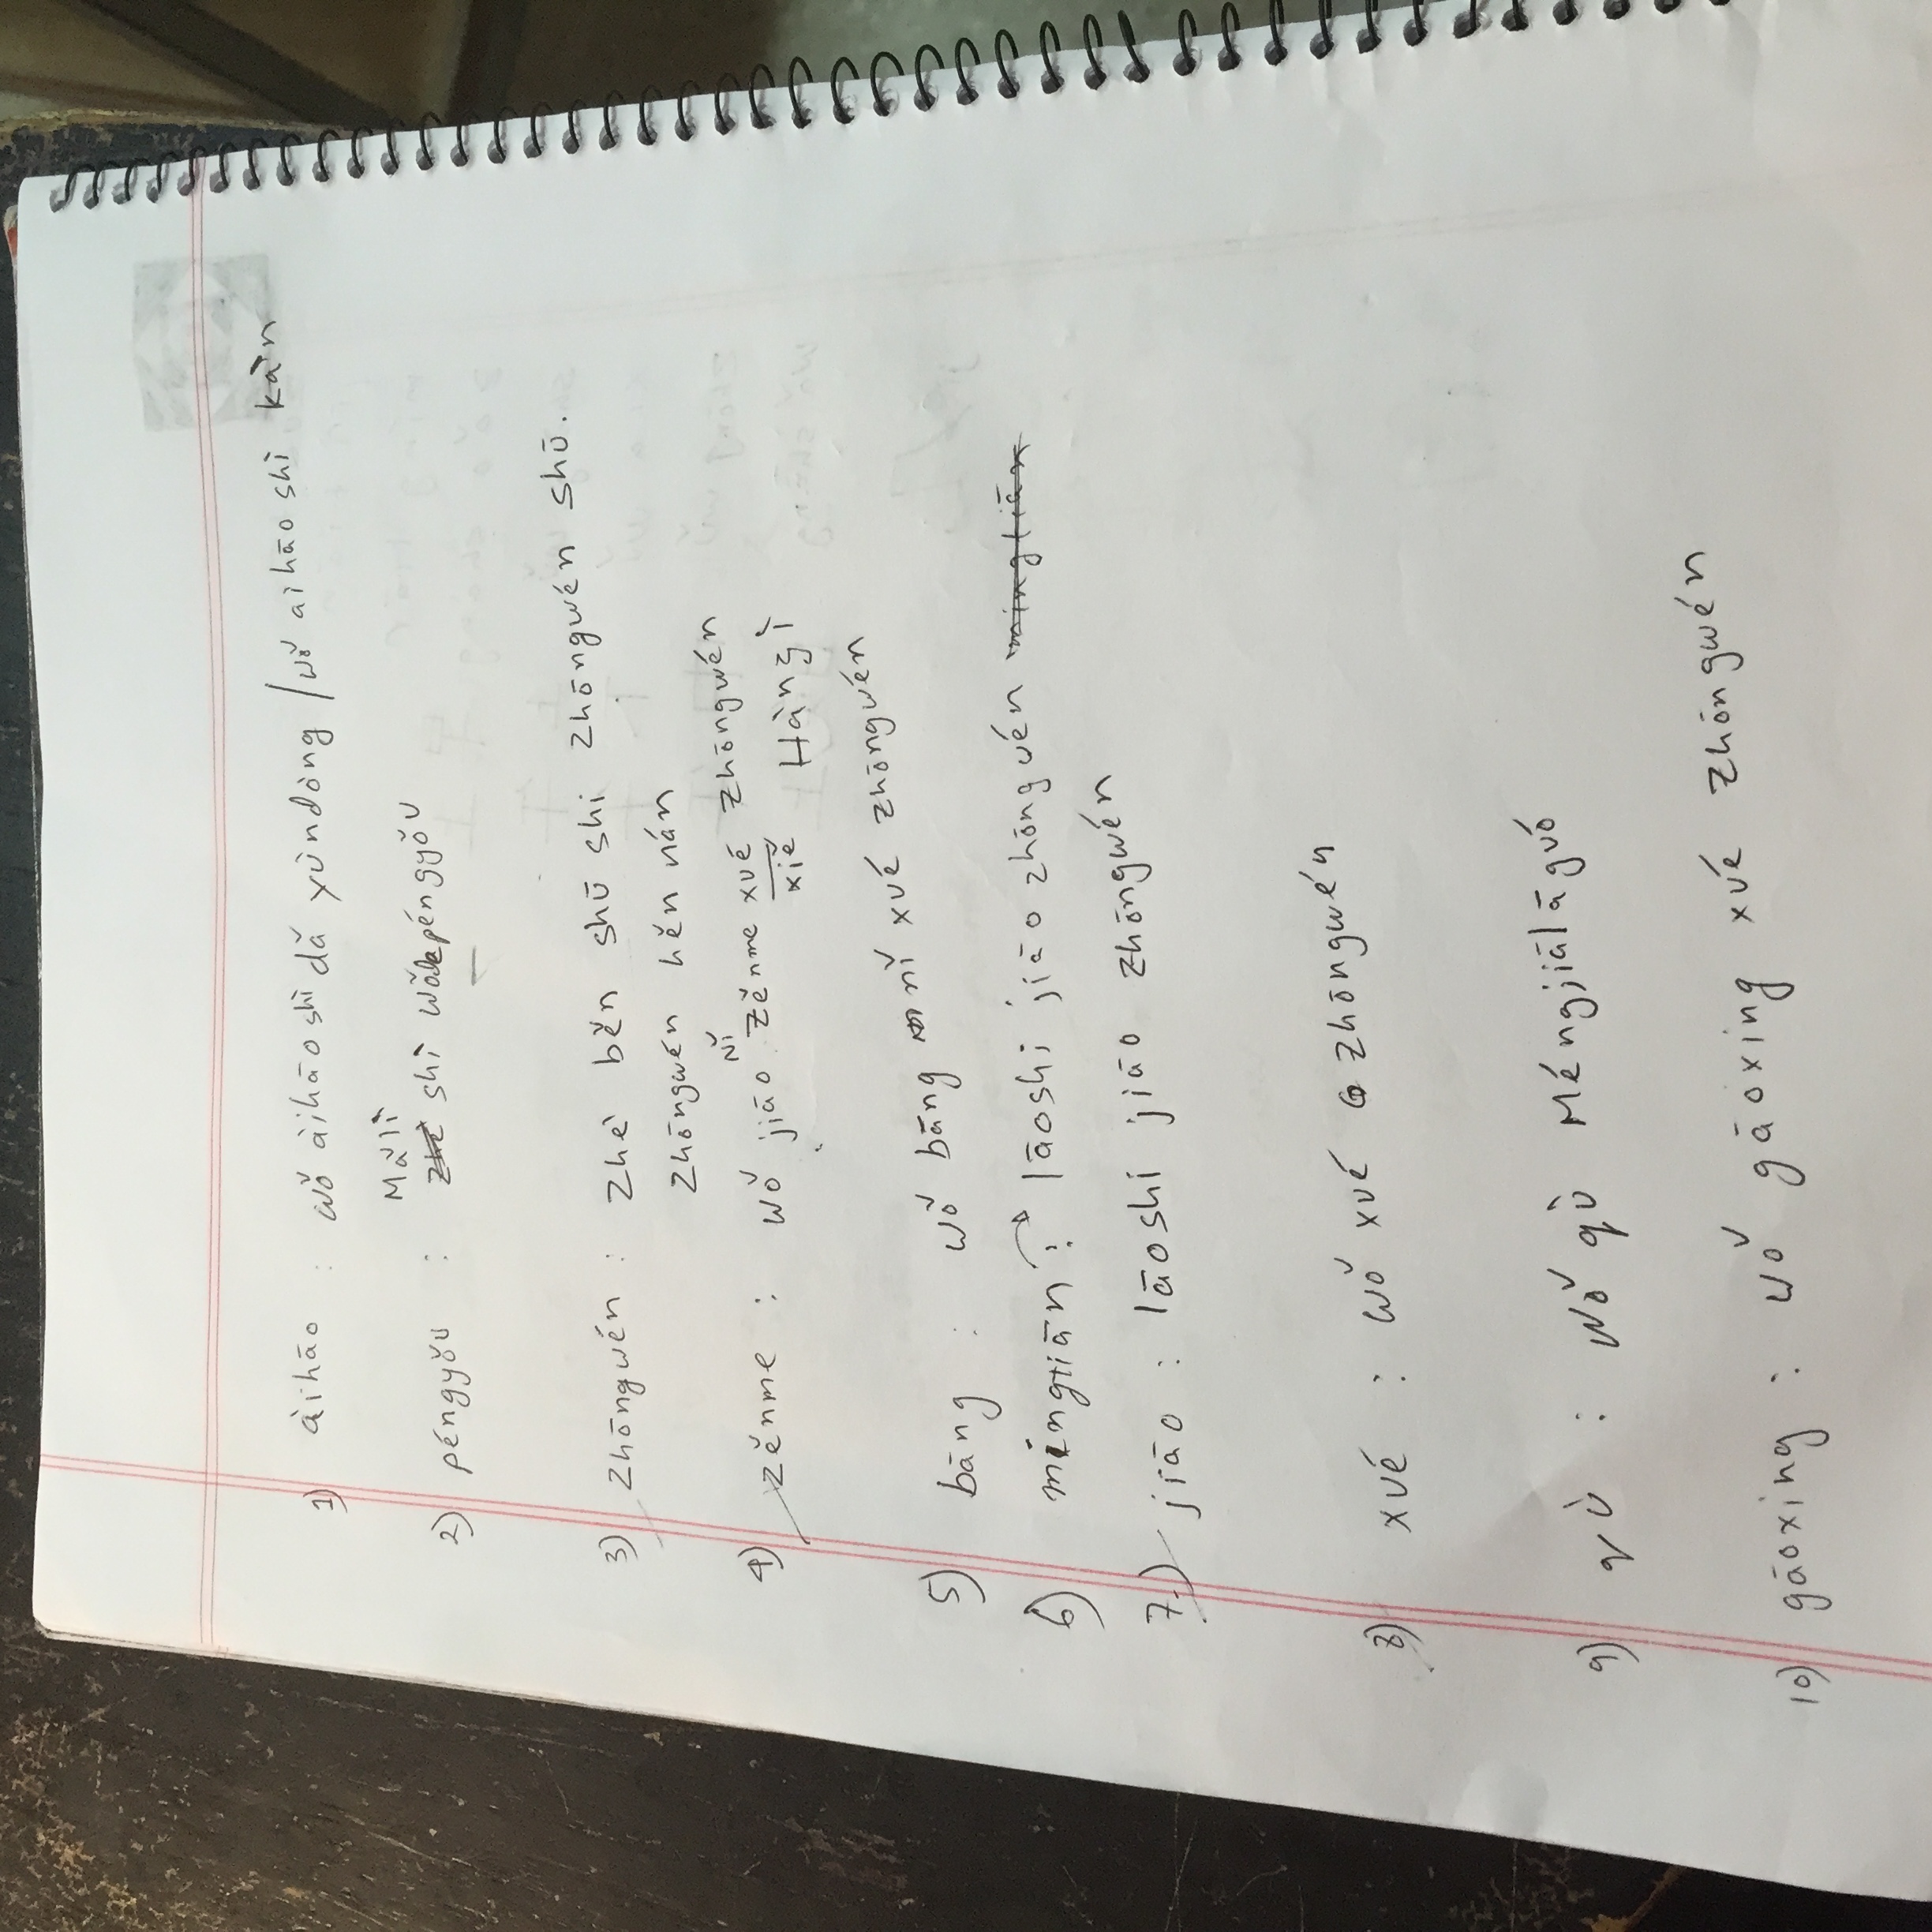 1) àihāo : wǒ àihāo shì dǎ yùndòng / wǒ aihāo shì kàn
Mǎlì
2) péngyǒu : shì wǒde péngyǒu
3) Zhōngwén : Zhè běn shū shi zhōngwén shū.
Zhōngwén hěn nán
nǐ
4) zěnme : wǒ jiāo zěnme xué zhōngwén
xiě Hànzì
5) bāng : wǒ bāng nǐ xué zhōngwén
6) mingtiān : lāoshi jiāo zhōngwén mingtiān
7) jiāo : lāoshi jiāo zhōngwén
8) xué : wǒ xué zhōngwén
9) qù : wǒ qù Méngjiālāguó
10) gāoxing : wǒ gāoxing xué zhōngwén